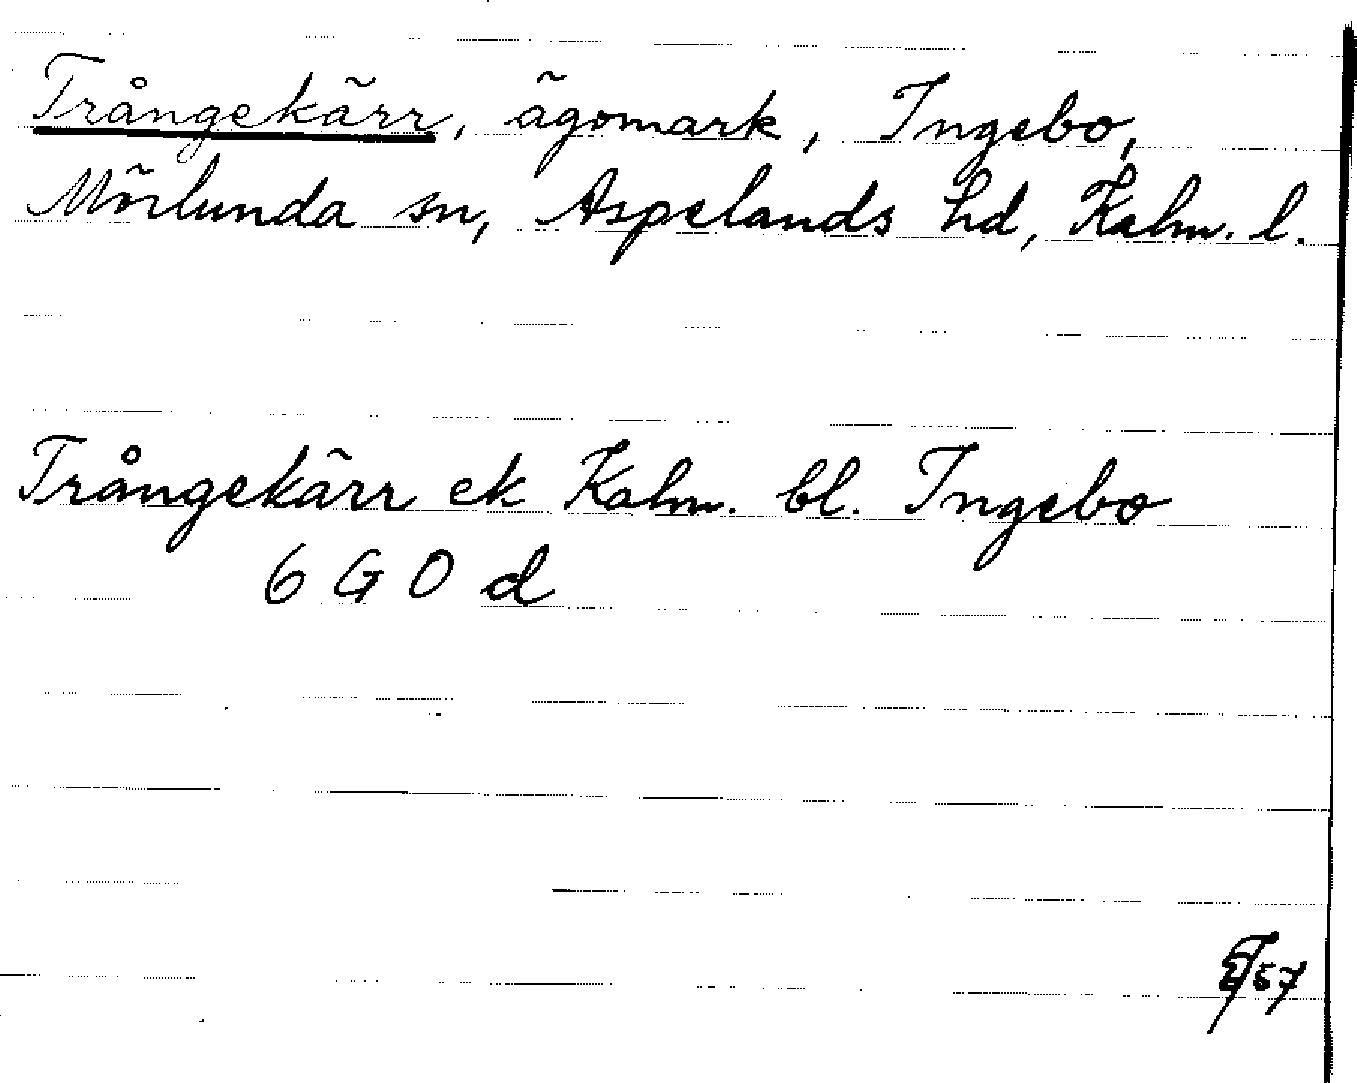 Trångekärr, ägomark, Ingebo,
Mörlunda sn, Aspelands hd, Kalm. l.
Trångekärr ek Kalm. bl. Ingebo
6 G O d
57